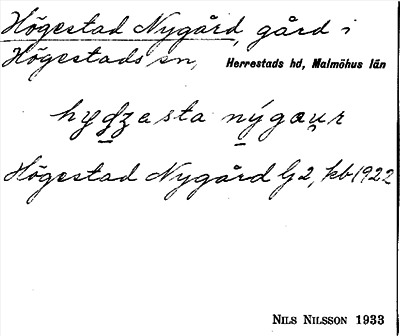 Högestad Nygård, gård i
Högestads sn, Herrestads hd, Malmöhus län
hyd̲z̲asta ný̲gau̯r
Högestad Nygård G 2, kb 1922
NILS NILSSON 1933